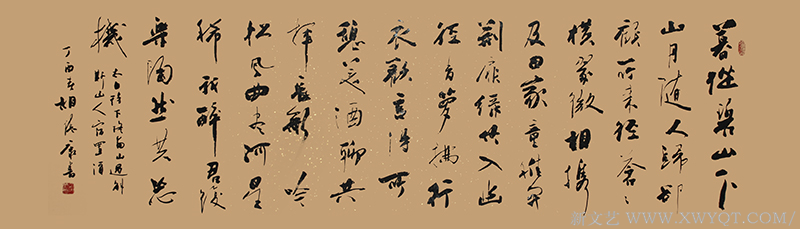 暮從碧山下
山月隨人歸卻
顧所來徑蒼〻
橫翠微相攜
及田家童稚開
荊扉綠竹入幽
徑青蘿拂行
衣歡言得所
憩美酒聊共
揮長歌吟
松風曲盡河星
稀我醉君復
樂陶然共忘
機
太白詩下終南山過斛
斯山人宿置酒
丁酉春
新文艺 WWW.XWYQT.COM/